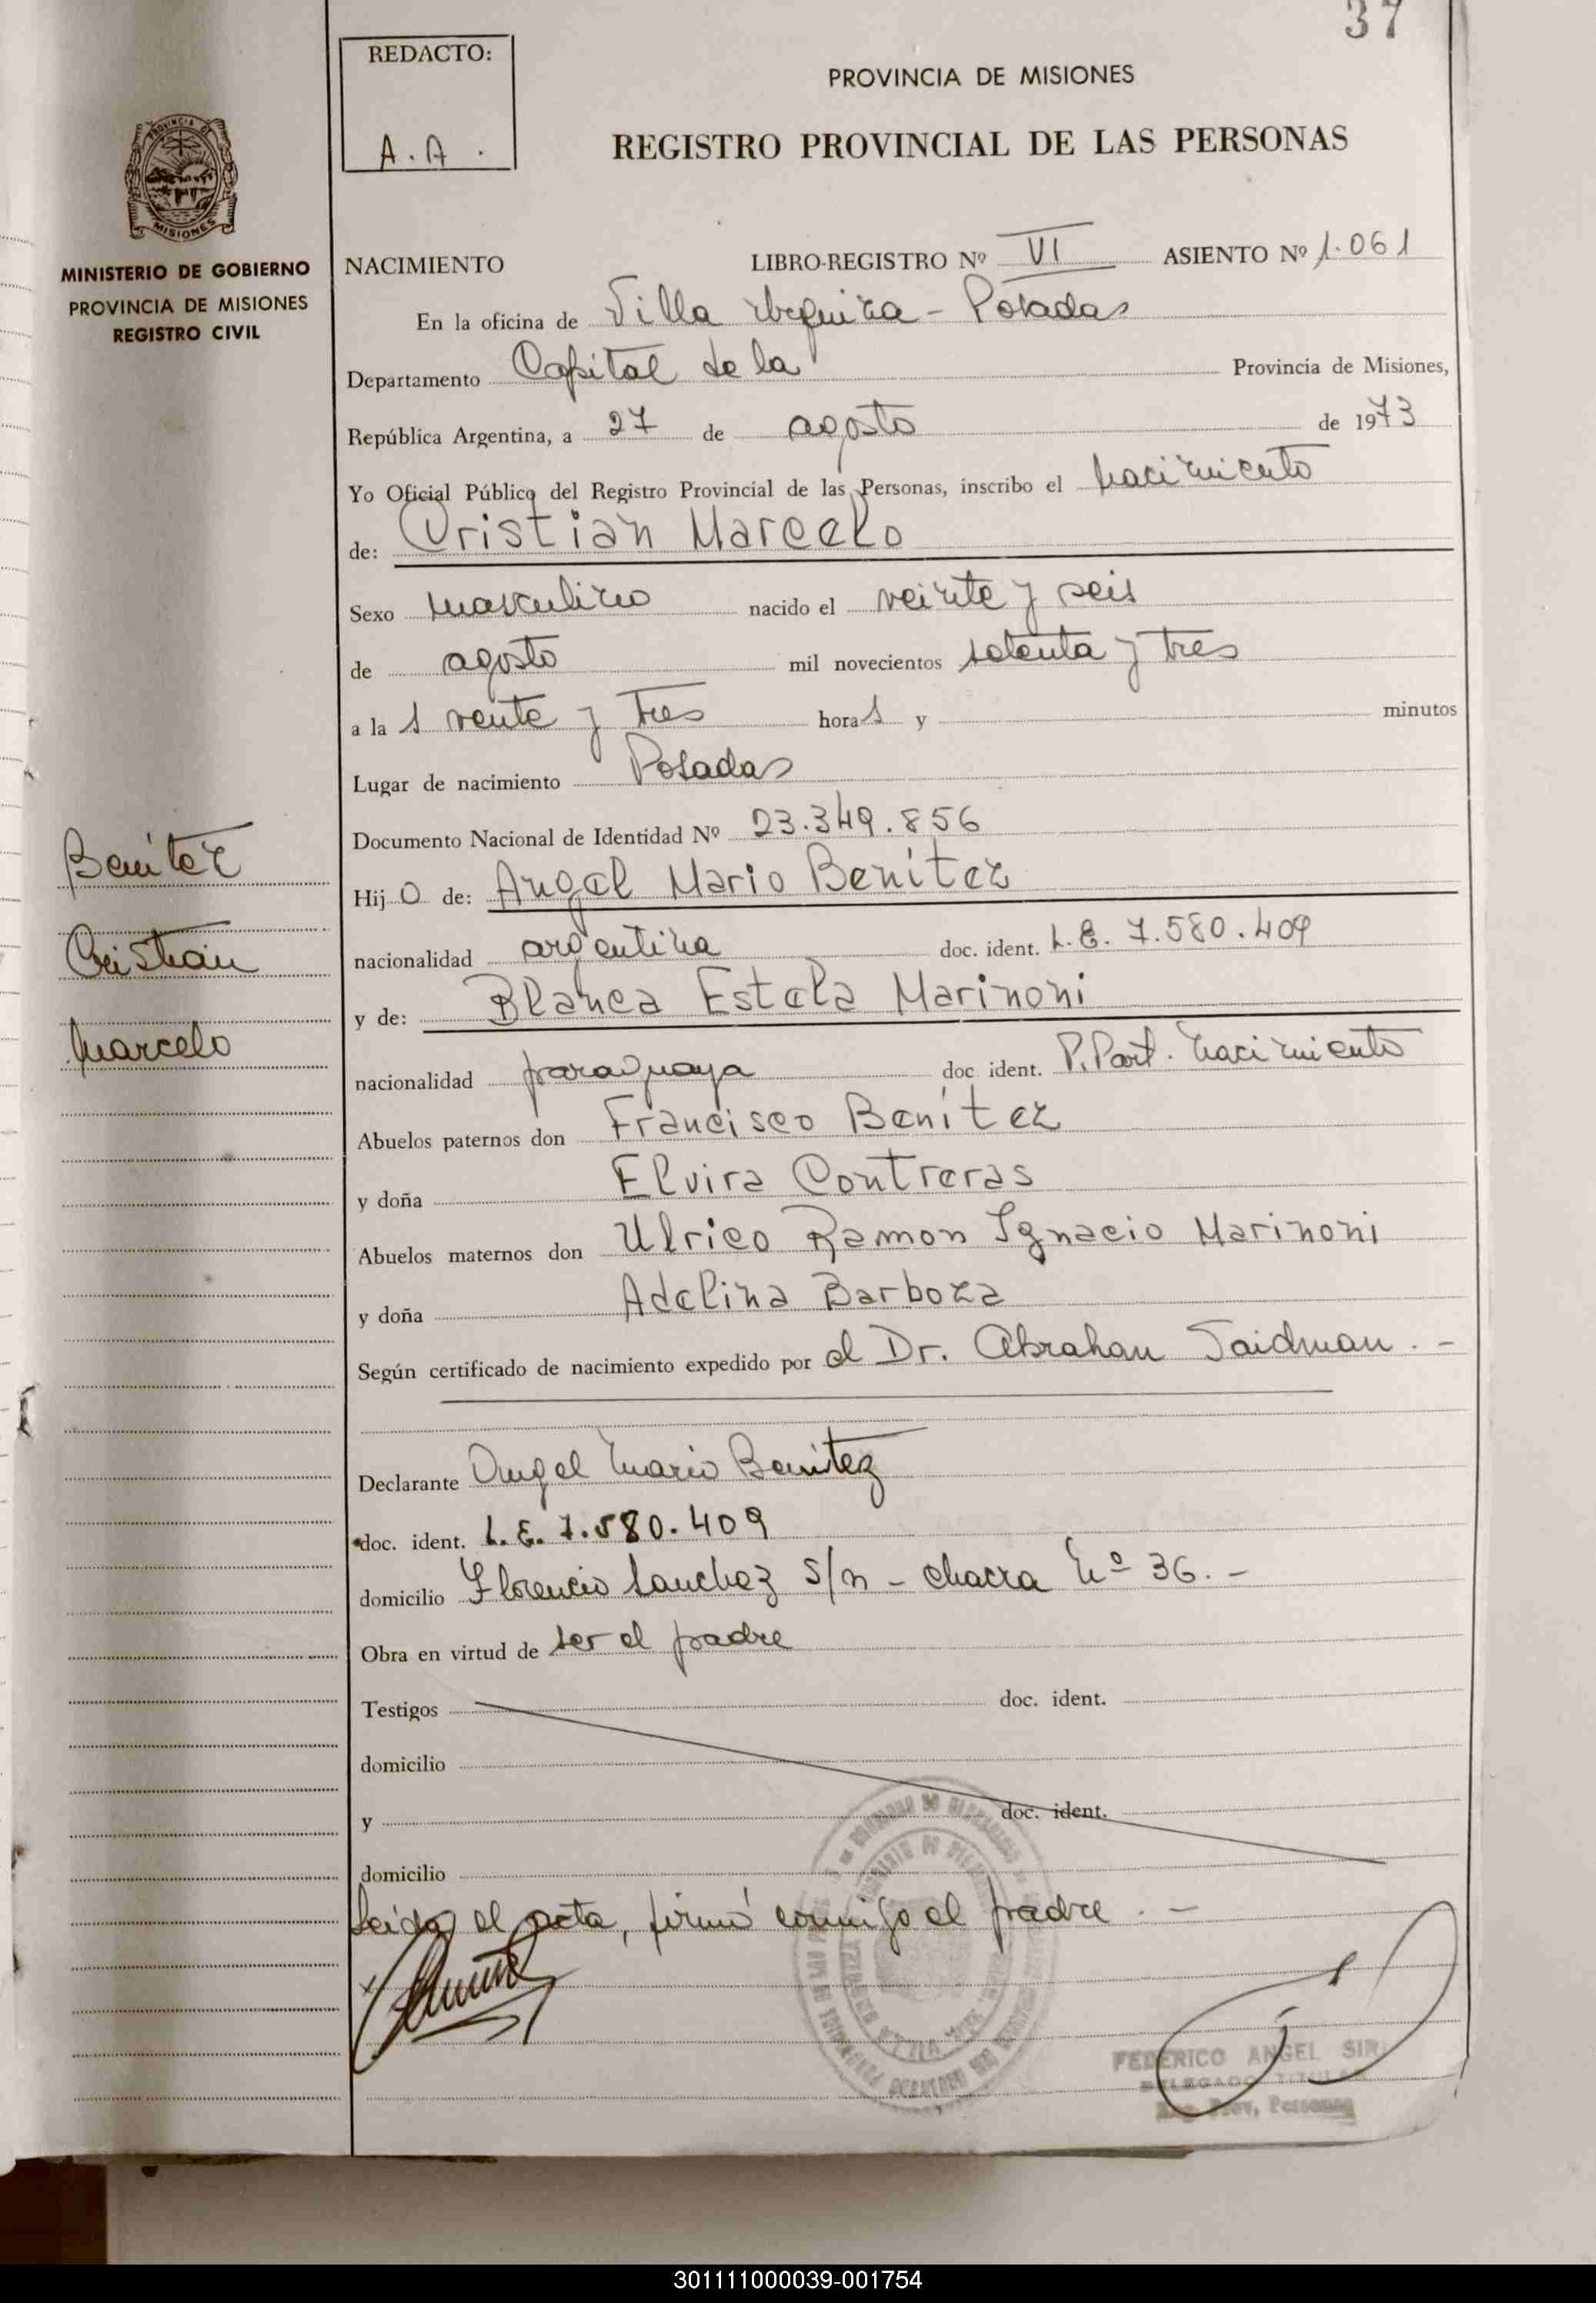 37
REDACTO:
A.A.
PROVINCIA DE MISIONES
REGISTRO PROVINCIAL DE LAS PERSONAS
PROVINCIA DE
MISIONES
MINISTERIO DE GOBIERNO
PROVINCIA DE MISIONES
REGISTRO CIVIL
NACIMIENTO LIBRO-REGISTRO Nº VI ASIENTO Nº 1.061
En la oficina de Villa Urquiza - Posadas
Departamento Capital de la Provincia de Misiones,
República Argentina, a 27 de agosto de 1973
Yo Oficial Público del Registro Provincial de las Personas, inscribo el nacimiento
de: Cristian Marcelo
Sexo masculino nacido el veinte y seis
de agosto mil novecientos setenta y tres
a la s veinte y tres hora s y minutos
Lugar de nacimiento Posadas
Documento Nacional de Identidad Nº 23.349.856
Benitez
Hij o de: Angel Mario Benítez
Cristian
nacionalidad argentina doc. ident. L.E. 7.580.409
y de: Blanca Estela Marinoni
Marcelo
nacionalidad paraguaya doc. ident. P. Part. Nacimiento
Abuelos paternos don Francisco Benítez
y doña Elvira Contreras
Abuelos maternos don Ulrico Ramon Ignacio Marinoni
y doña Adelina Barboza
Según certificado de nacimiento expedido por el Dr. Abrahan Saidman . -
Declarante Angel Mario Benitez
doc. ident. L.E. 7.580.409
domicilio Florencio Sanchez s/n - chacra Nº 36. -
Obra en virtud de ser el padre
Testigos doc. ident.
domicilio
y doc. ident.
domicilio
Leida el acta, firmó conmigo el padre . -
FEDERICO ANGEL SIR
DELEGADO TITULAR
Reg. Prov. Personas
301111000039-001754